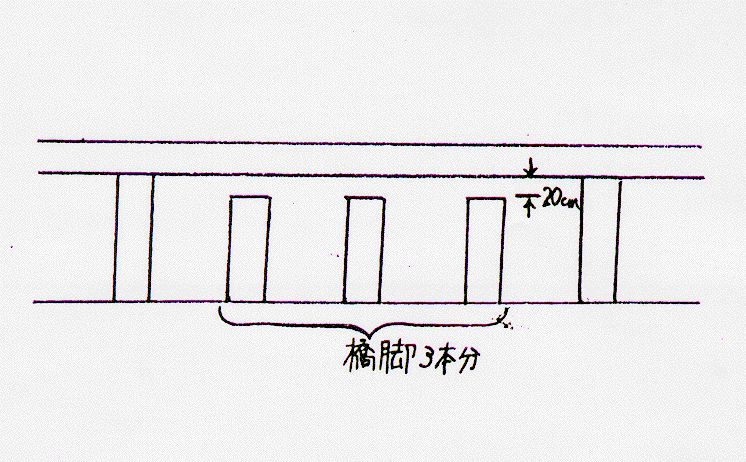 20cm
橋脚3本分